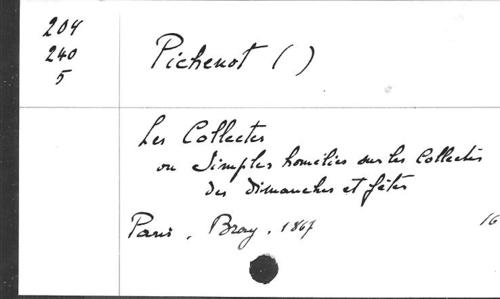 204
240
5
Pichenot ( )
Les Collectes
ou Simples homélies sur les Collectes
des dimanches et fêtes
Paris, Bray, 1867
16